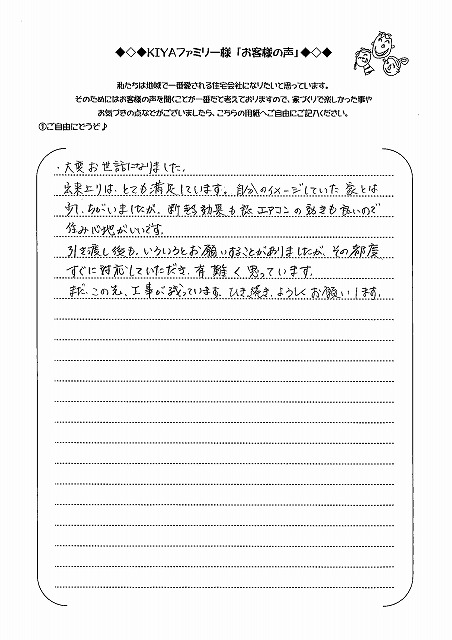 ◆◇◆KIYAファミリー様「お客様の声」◆◇◆
私たちは地域で一番愛される住宅会社になりたいと思っています。
そのためにはお客様の声を聞くことが一番だと考えておりますので、家づくりで楽しかった事や
お気づきの点などがございましたら、こちらの用紙へご自由にご記入ください。
①ご自由にどうぞ♪
・大変お世話になりました。
出来上りは、とても満足しています。自分のイメージしていた家とは
少し、ちがいましたが、断熱効果も エアコンの効きも良いので
住み心地がいいです。
引き渡し後も、いろいろとお願いすることがありましたが、その都度
すぐに対応していただき、有難く思っています。
まだ、この先、工事が残っています。ひき続き、よろしくお願いします。